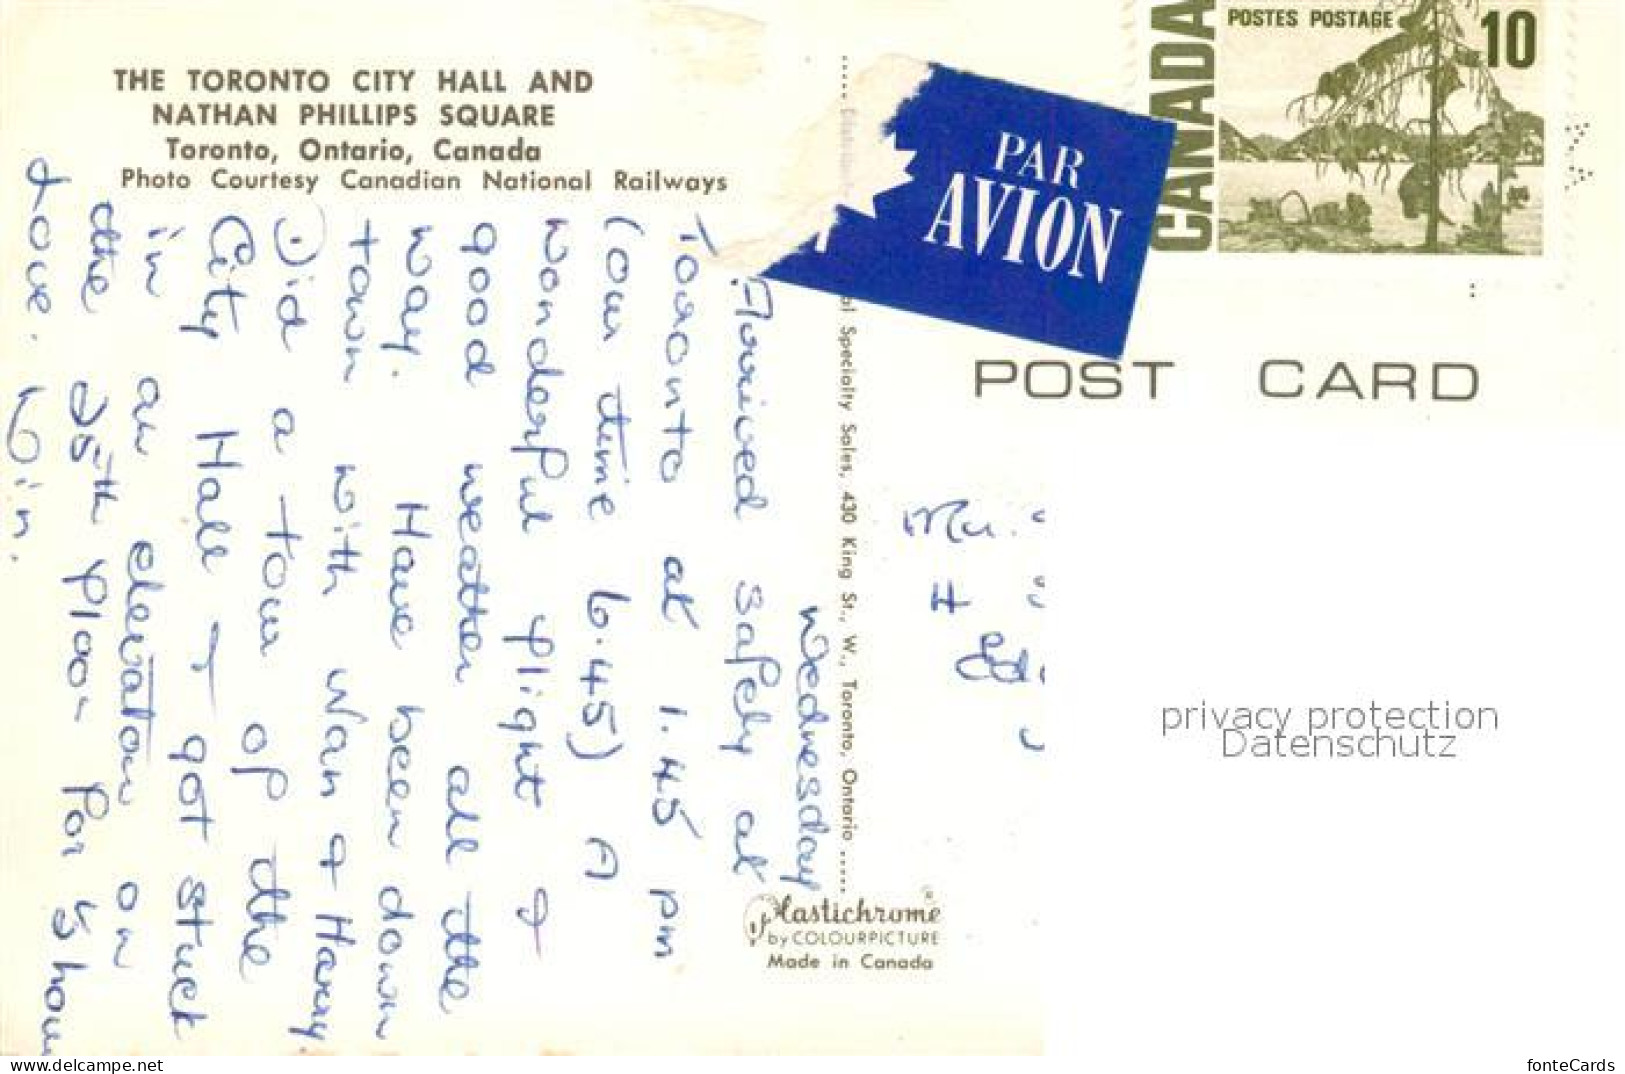 THE TORONTO CITY HALL AND
NATHAN PHILLIPS SQUARE
Toronto, Ontario, Canada
Photo Courtesy Canadian National Railways
Wednesday
Arrived safely at
Toronto at 1.45 pm
(our time 6.45) A
wonderful flight &
good weather all the
way. Have been down
town with Nan & Harry
Did a tour of the
City Hall & got stuck
in an elevator on
the 25th floor for ½ hour
Love. Win.
PAR
AVION
CANADA
POSTES POSTAGE
10
POST CARD
al Specialty Sales, 430 King St., W., Toronto, Ontario
Plastichrome®
by COLOURPICTURE
Made in Canada
4
privacy protection
Datenschutz
fonteCards